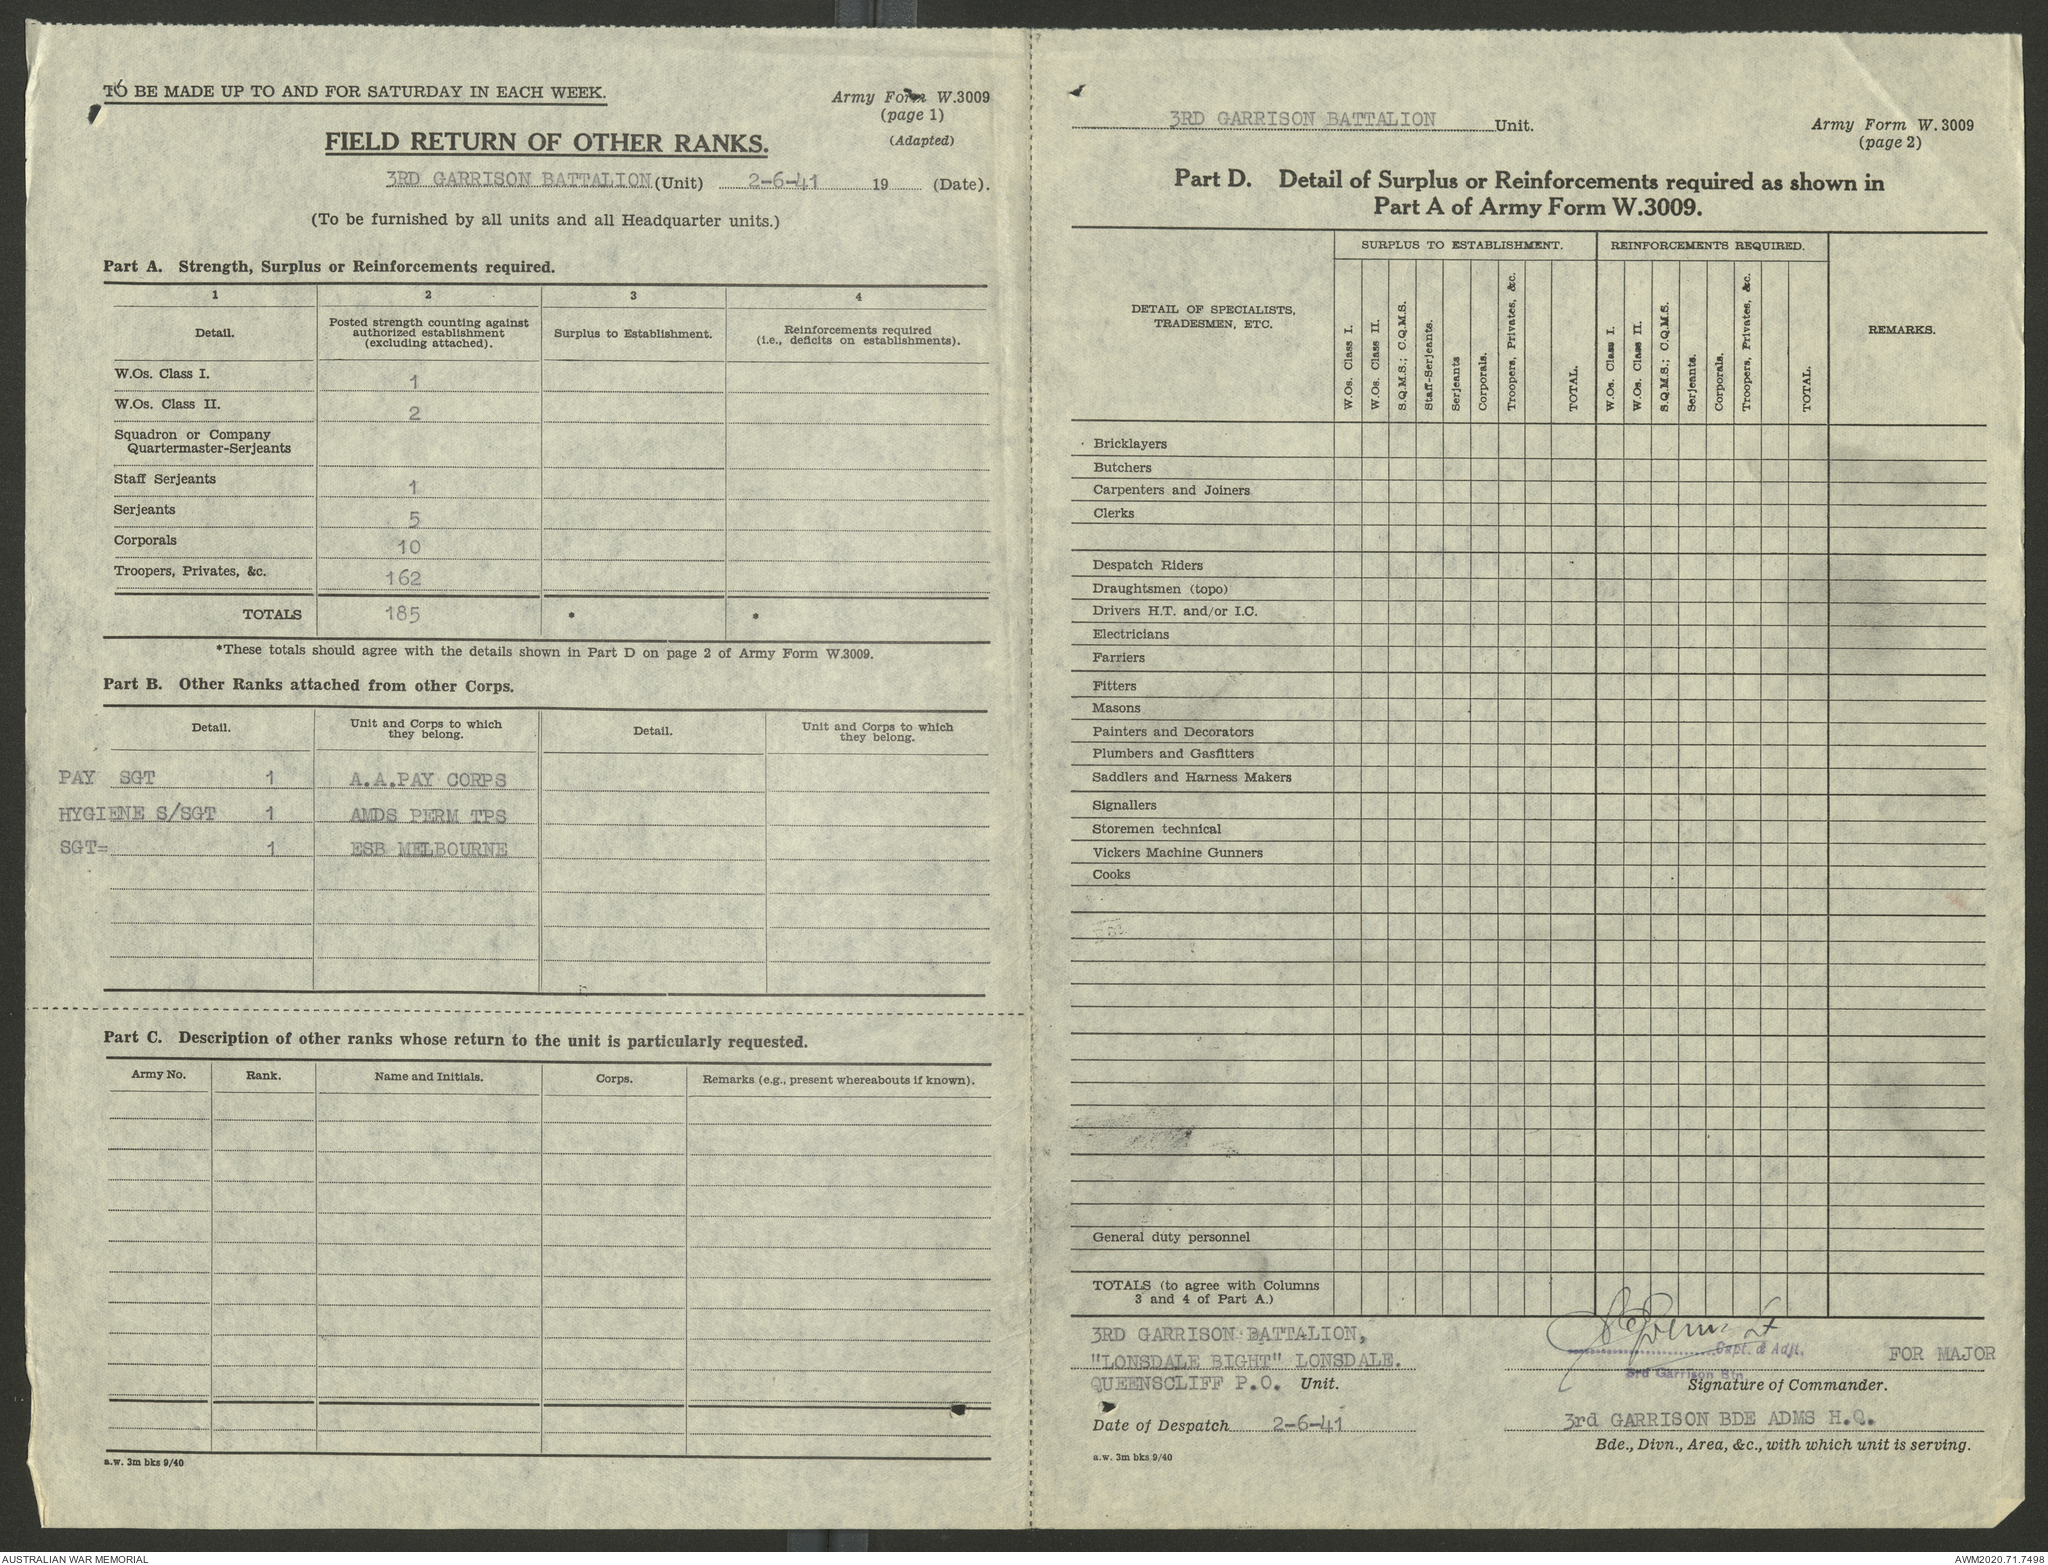 TO BE MADE UP TO AND FOR SATURDAY IN EACH WEEK.
Army Form W.3009
(page 1)
(Adapted)
FIELD RETURN OF OTHER RANKS.
3RD GARRISON BATTALION (Unit) 2-6-41 19 (Date).
(To be furnished by all units and all Headquarter units.)
Part A. Strength, Surplus or Reinforcements required.
1 2 3 4
Detail. Posted strength counting against authorized establishment (excluding attached). Surplus to Establishment. Reinforcements required (i.e., deficits on establishments).
W.Os. Class I. 1
W.Os. Class II. 2
Squadron or Company
Quartermaster-Serjeants
Staff Serjeants 1
Serjeants 5
Corporals 10
Troopers, Privates, &c. 162
TOTALS 185 * *
*These totals should agree with the details shown in Part D on page 2 of Army Form W.3009.
Part B. Other Ranks attached from other Corps.
Detail. Unit and Corps to which they belong. Detail. Unit and Corps to which they belong.
PAY SGT 1 A.A.PAY CORPS
HYGIENE S/SGT 1 AMDS PERM TPS
SGT= 1 ESB MELBOURNE
Part C. Description of other ranks whose return to the unit is particularly requested.
Army No. Rank. Name and Initials. Corps. Remarks (e.g., present whereabouts if known).
a.w. 3m bks 9/40
3RD GARRISON BATTALION Unit.
Army Form W.3009
(page 2)
Part D. Detail of Surplus or Reinforcements required as shown in
Part A of Army Form W.3009.
DETAIL OF SPECIALISTS, TRADESMEN, ETC. SURPLUS TO ESTABLISHMENT. REINFORCEMENTS REQUIRED. REMARKS.
W.Os. Class I. W.Os. Class II. S.Q.M.S.; C.Q.M.S. Staff-Serjeants. Serjeants Corporals. Troopers, Privates, &c. TOTAL. W.Os. Class I. W.Os. Class II. S.Q.M.S.; C.Q.M.S. Serjeants. Corporals. Troopers, Privates, &c. TOTAL.
Bricklayers
Butchers
Carpenters and Joiners
Clerks
Despatch Riders
Draughtsmen (topo)
Drivers H.T. and/or I.C.
Electricians
Farriers
Fitters
Masons
Painters and Decorators
Plumbers and Gasfitters
Saddlers and Harness Makers
Signallers
Storemen technical
Vickers Machine Gunners
Cooks
General duty personnel
TOTALS (to agree with Columns
3 and 4 of Part A.)
3RD GARRISON BATTALION,
"LONSDALE BIGHT" LONSDALE.
QUEENSCLIFF P.O. Unit.
Date of Despatch 2-6-41
a.w. 3m bks 9/40
Capt. & Adjt. FOR MAJOR
3rd Garrison Btn.
Signature of Commander.
3rd GARRISON BDE ADMS H.Q.
Bde., Divn., Area, &c., with which unit is serving.
AUSTRALIAN WAR MEMORIAL
AWM2020.71.7498